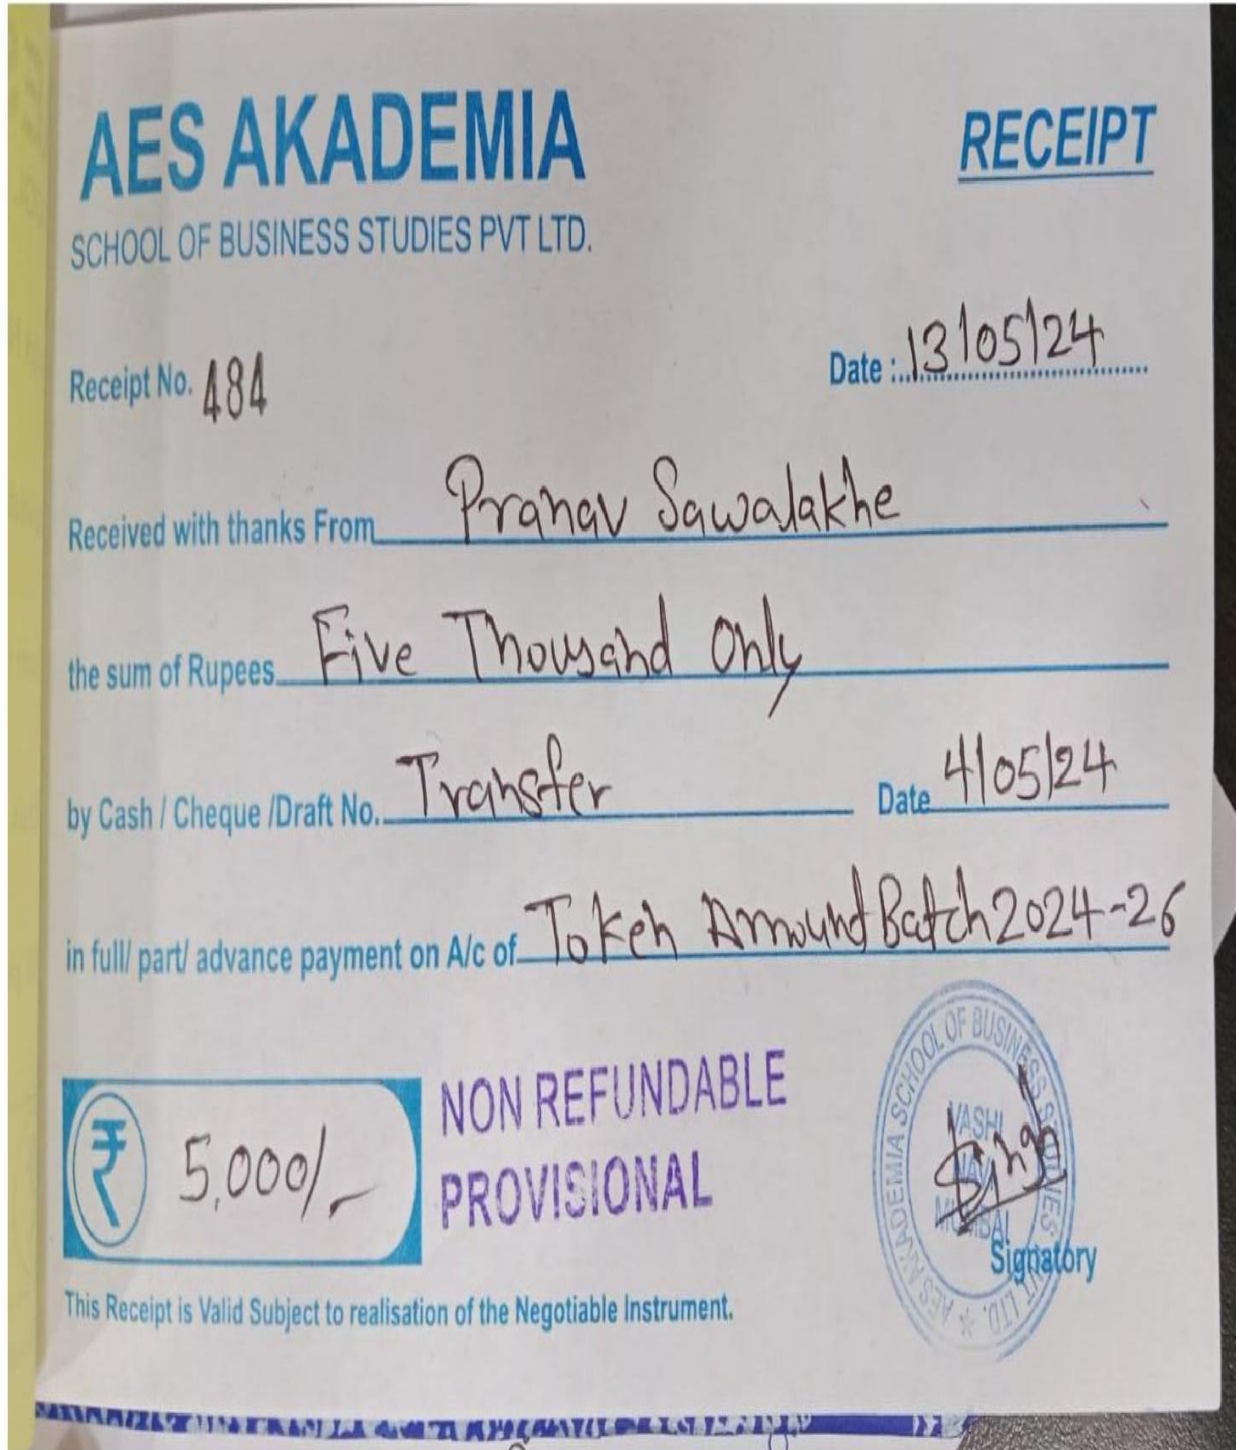 AES AKADEMIA
RECEIPT
SCHOOL OF BUSINESS STUDIES PVT LTD.
Receipt No. 484
Date : 13/05/24
Received with thanks From Pranav Sawalakhe
the sum of Rupees Five Thousand Only
by Cash / Cheque /Draft No. Transfer Date 4/05/24
in full/ part/ advance payment on A/c of Token Amount Batch 2024-26
₹ 5,000/-
NON REFUNDABLE
PROVISIONAL
AES AKADEMIA SCHOOL OF BUSINESS STUDIES PVT LTD.
VASHI
NAVI
MUMBAI
Singh
Signatory
This Receipt is Valid Subject to realisation of the Negotiable Instrument.